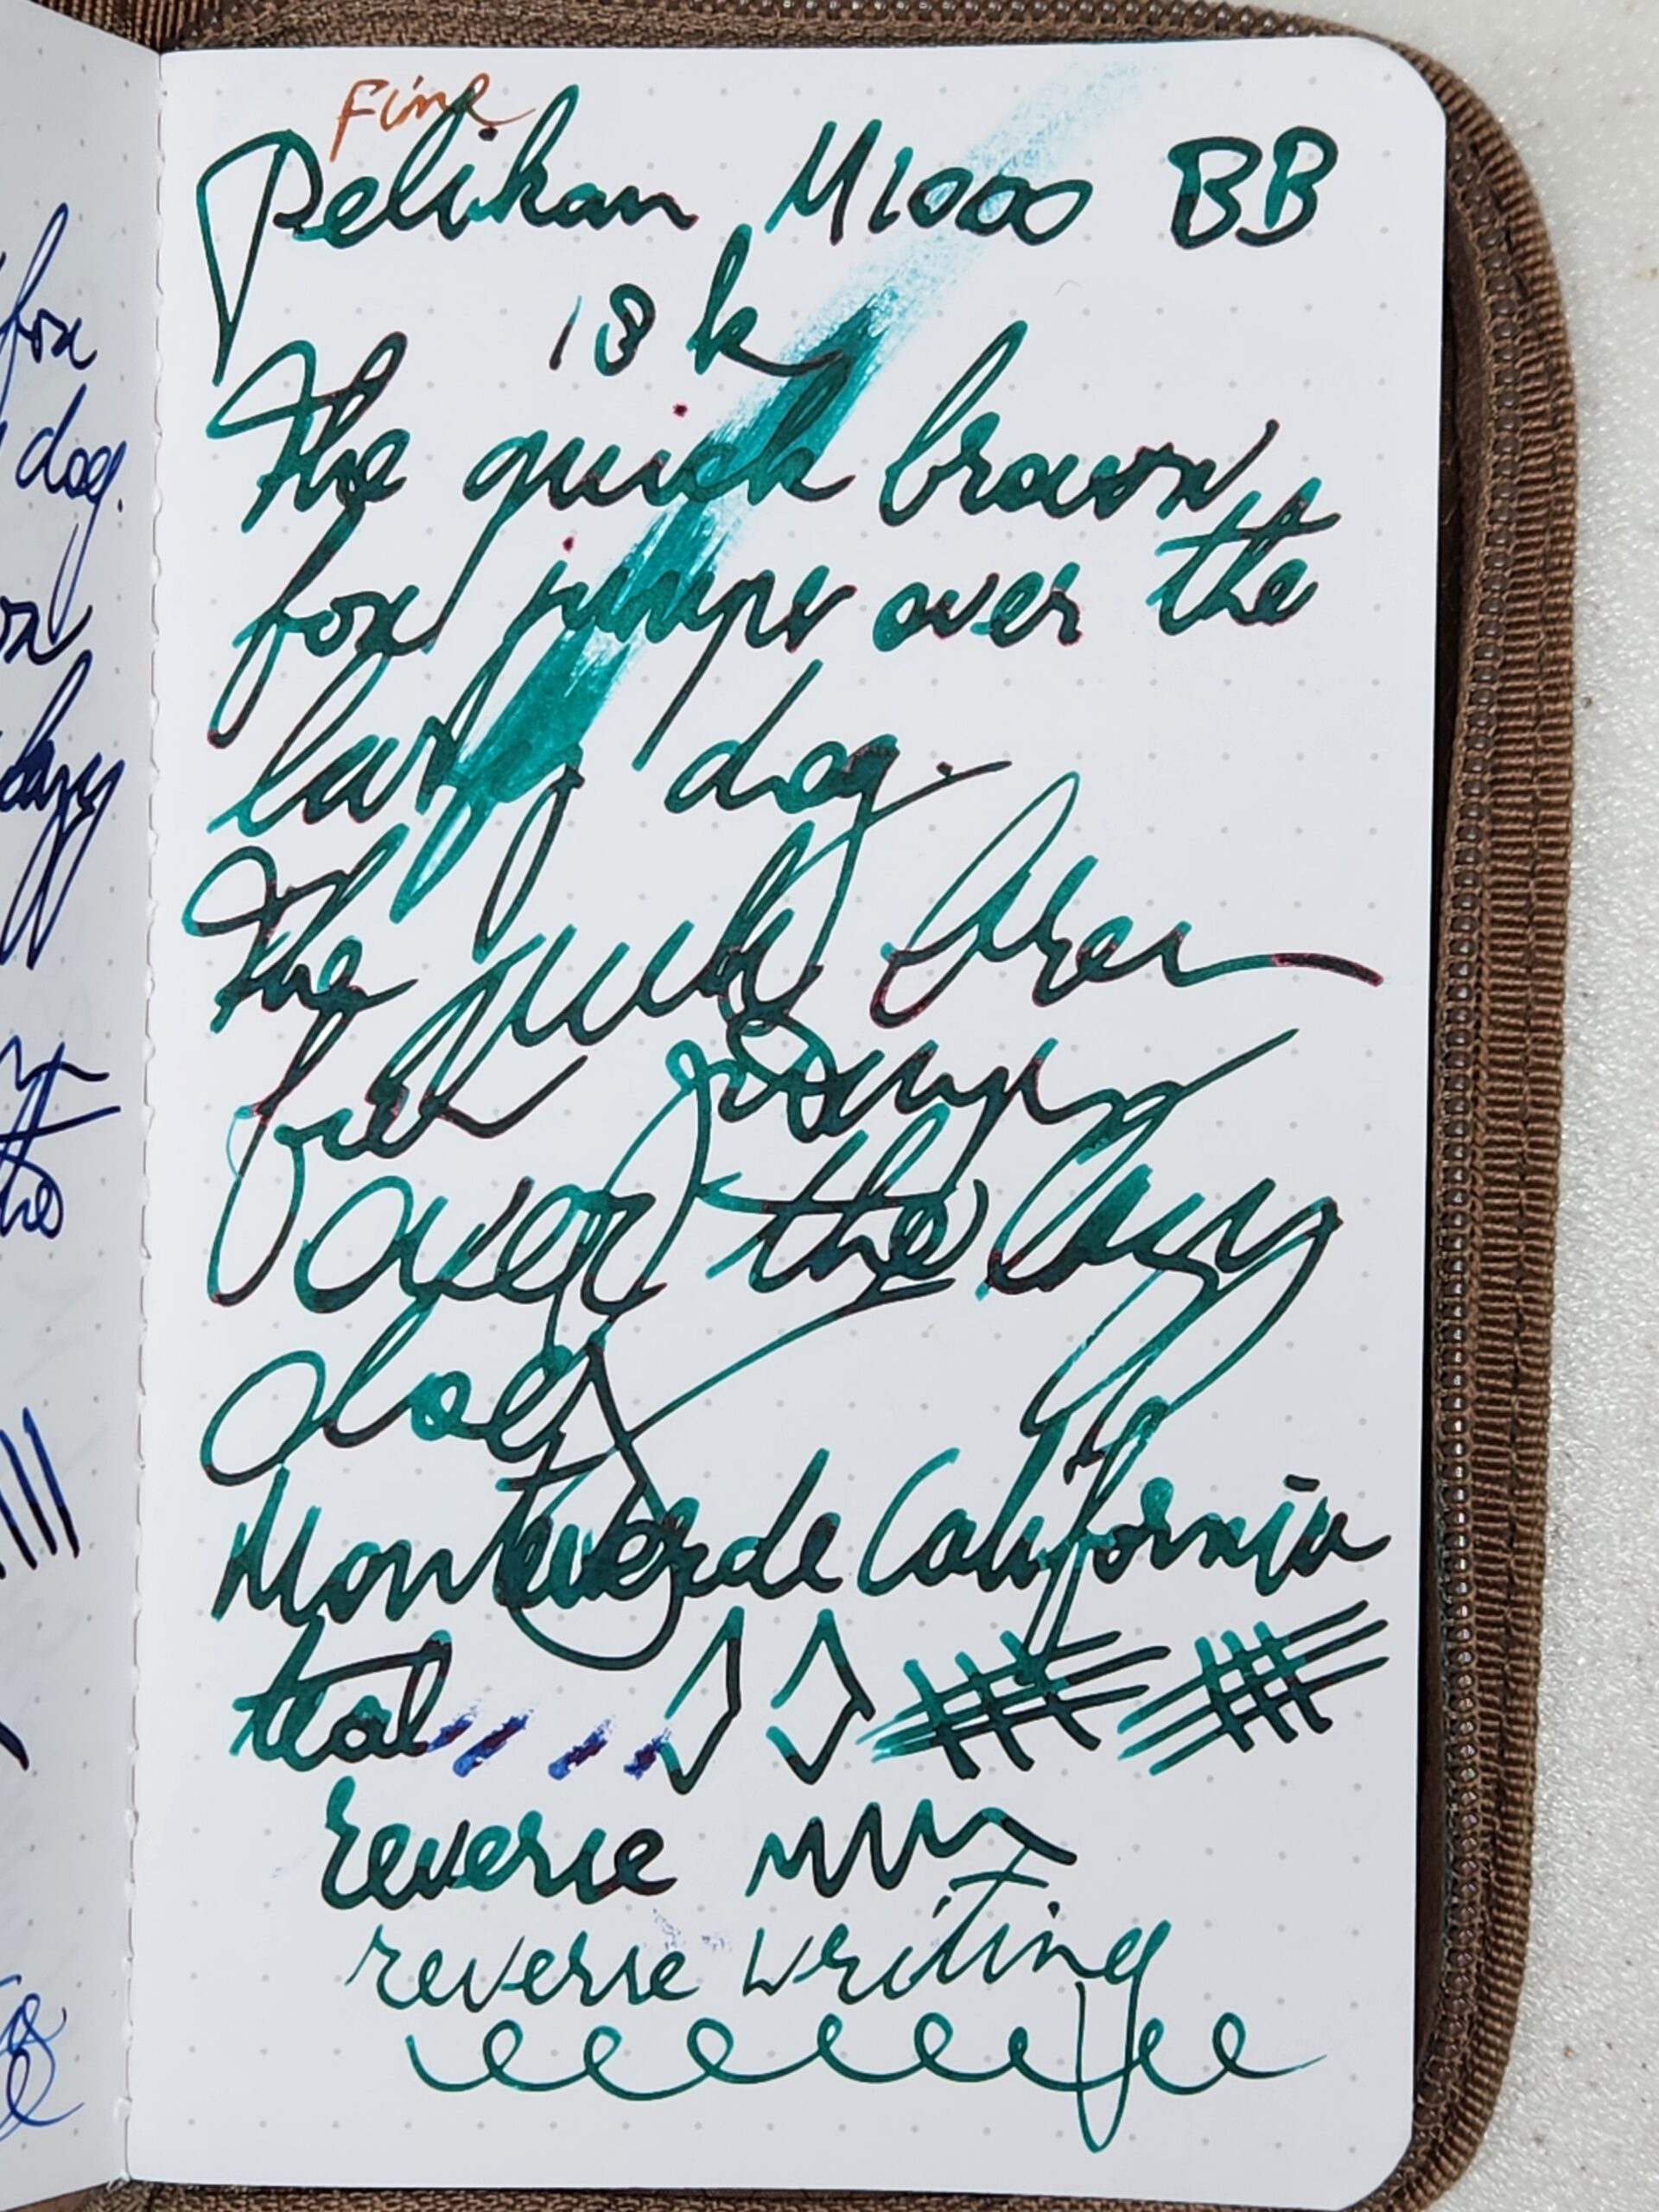 Fine
Pelikan M1000 BB
18k
The quick brown
fox jumps over the
lazy dog.
The quick brown
fox jumps
over the lazy
dog
Monteverde California
teal
reverse
reverse writing
fox
dog.
lazy
the